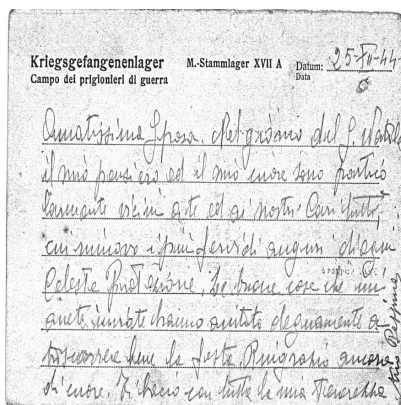 Kriegsgefangenenlager M.-Stammlager XVII A Datum: 25-XII-44
Campo dei prigionieri di guerra Data
Amatissima Sposa, Nel giorno del S. Natale
il mio pensiero ed il mio cuore sono partico
larmente vicini a te ed ai nostri Cari tutti,
cui rinnovo i più fervidi auguri di ogni
Celeste Protezione. Le buone cose che mi
avete inviato hanno aiutato degnamente a
trascorrere bene la festa. Ringrazio ancora
di cuore. Ti bacio con tutta la mia Tenerezza